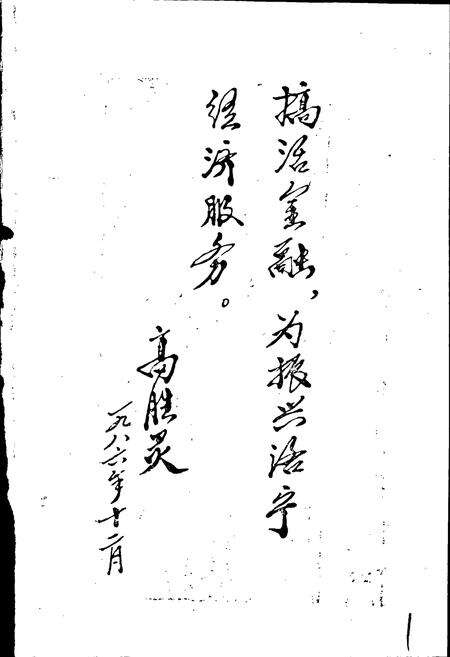 搞活金融，为振兴洛宁
经济服务。
高胜灵
一九八六年十二月